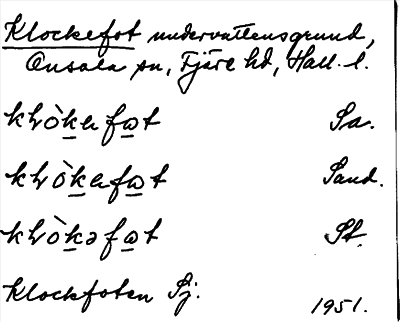 Klockefot undervattensgrund,
Onsala sn, Fjäre hd, Hall. l.
khòkefɷt Sa.
khòkefɷt Sand.
khòkəfɷt St.
Klockfoten Sj.
1951.